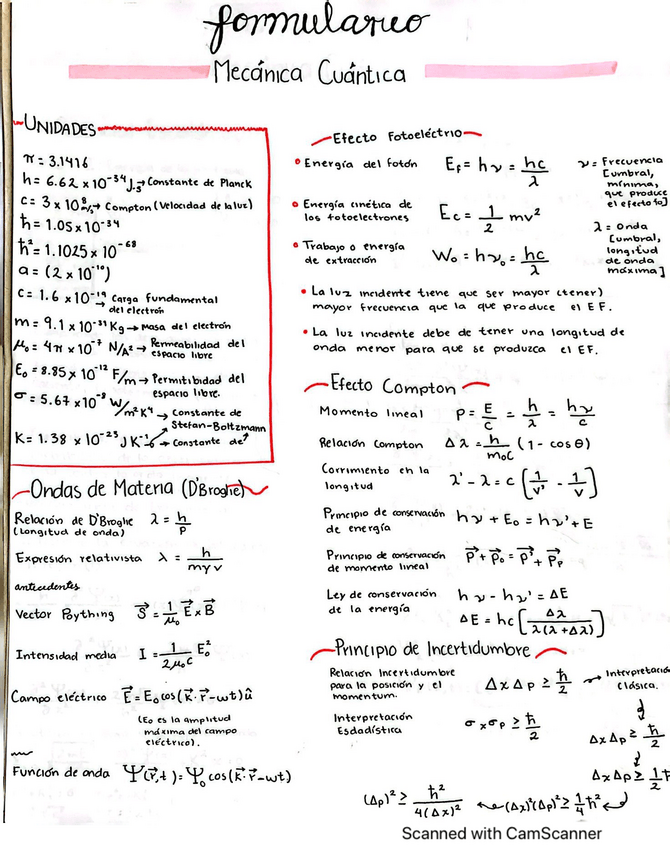 formulareo
Mecánica Cuántica
UNIDADES
π = 3.1416
h = 6.62 x 10⁻³⁴ J.s → Constante de Planck
c = 3 x 10⁸ m/s → Compton (Velocidad de la luz)
ħ = 1.05 x 10⁻³⁴
ħ² = 1.1025 x 10⁻⁶⁸
a = (2 x 10⁻¹⁰)
C = 1.6 x 10⁻¹⁹ → Carga fundamental
del electrón
m = 9.1 x 10⁻³¹ Kg → Masa del electrón
μ₀ = 4π x 10⁻⁷ N/A² → Permeabilidad del
espacio libre
E₀ = 8.85 x 10⁻¹² F/m → Permitibidad del
espacio libre.
σ = 5.67 x 10⁻⁸ W/m²K⁴ → Constante de
Stefan-Boltzmann
K = 1.38 x 10⁻²³ J K⁻¹ → Constante de
Ondas de Materia (D'Broglie)
Relación de D'Broglie λ = h/p
(Longitud de onda)
Expresión relativista λ = h/mγv
antecedentes
Vector Poything S⃗ = 1/μ₀ E⃗ x B⃗
Intensidad media I = 1/2μ₀c E₀²
Campo eléctrico E⃗ = E₀ cos(k⃗·r⃗-ωt)û
(E₀ es la amplitud
máxima del campo
eléctrico).
Función de onda Ψ(r⃗,t) = Ψ₀ cos(k⃗·r⃗-ωt)
Efecto Fotoeléctrio
• Energía del fotón E_f = hν = hc/λ
ν = Frecuencia
[umbral,
mínima,
que produce
el efecto fo]
• Energía cinética de
los fotoelectrones Ec = 1/2 mv²
λ = Onda
[umbral,
longitud
de onda
máxima]
• Trabajo o energía
de extracción W₀ = hν₀ = hc/λ
• La luz incidente tiene que ser mayor (tener)
mayor frecuencia que la que produce el EF.
• La luz incidente debe de tener una longitud de
onda menor para que se produzca el EF.
Efecto Compton
Momento lineal P = E/c = h/λ = hν/c
Relación Compton Δλ = h/m₀c (1 - cosθ)
Corrimiento en la
longitud λ' - λ = c [1/ν' - 1/ν]
Principio de conservación
de energía hν + E₀ = hν' + E
Principio de conservación
de momento lineal P⃗ + P⃗₀ = P⃗' + P⃗p
Ley de conservación
de la energía hν - hν' = ΔE
ΔE = hc [Δλ/λ(λ+Δλ)]
Principio de Incertidumbre
Relación Incertidumbre
para la posición y el
momentum. Δx Δp ≥ ħ/2 → Interpretació
Clásica.
Interpretación
Esdadística σxσp ≥ ħ/2
Δx Δp ≥ ħ/2
Δx Δp ≥ 1/2 ħ
(Δp)² ≥ ħ²/4(Δx)² ← (Δx)²(Δp)² ≥ 1/4 ħ²
Scanned with CamScanner